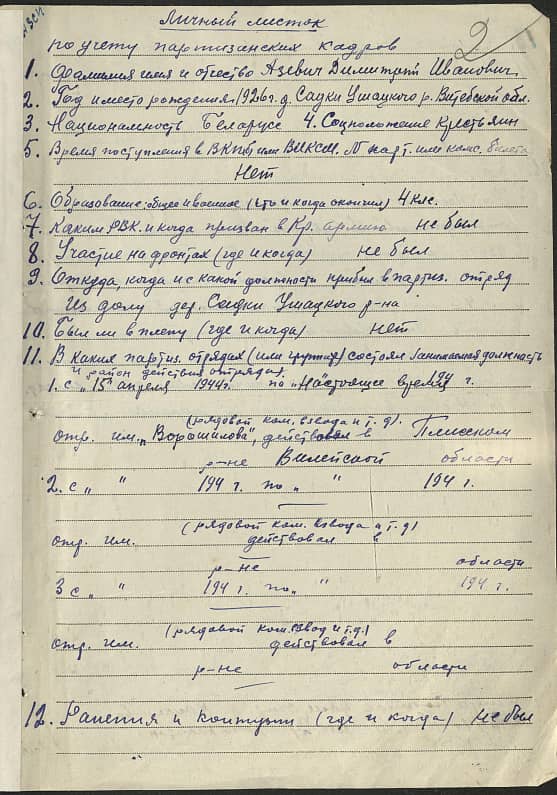 Личный листок
по учету партизанских кадров
2
1. Фамилия имя и отчество Азевич Димитрий Иванович
2. Год и место рождения 1926 г. д. Садки Ушацкого р. Витебской обл.
3. Национальность Беларусс 4. Соцположение Крестьянин
5. Время поступления в ВКП(б) или ВЛКСМ. № парт. или комс. билета
Нет
6. Образование: общее и военное (что и когда окончил) 4 клс.
7. Каким РВК. и когда призван в Кр. армию не был
8. Участие на фронтах (где и когда) не был
9. Откуда, когда и с какой должности прибыл в партиз. отряд
Из дому дер. Садки Ушацкого р-на
10. Был ли в плену (где и когда) нет
11. В каких партиз. отрядах (или группах) состоял (занимаемая должность
и район действия отряда).
1. с "15" апреля 1944 г. по "Настоящее время 194 г.
(рядовой ком. взвода и т. д.)
отр. им. "Ворошилова", действовал в Плисском
р-не Вилейской области
2. с " " 194 г. по " " 194 г.
(рядовой ком. взвода и т. д)
отр. им. действовал в
р-не области
3 с " " 194 г. по " " 194 г.
(рядовой ком. взвод и т. д.)
отр. им. действовал в
р-не области
12. Ранения и контузии (где и когда) не был